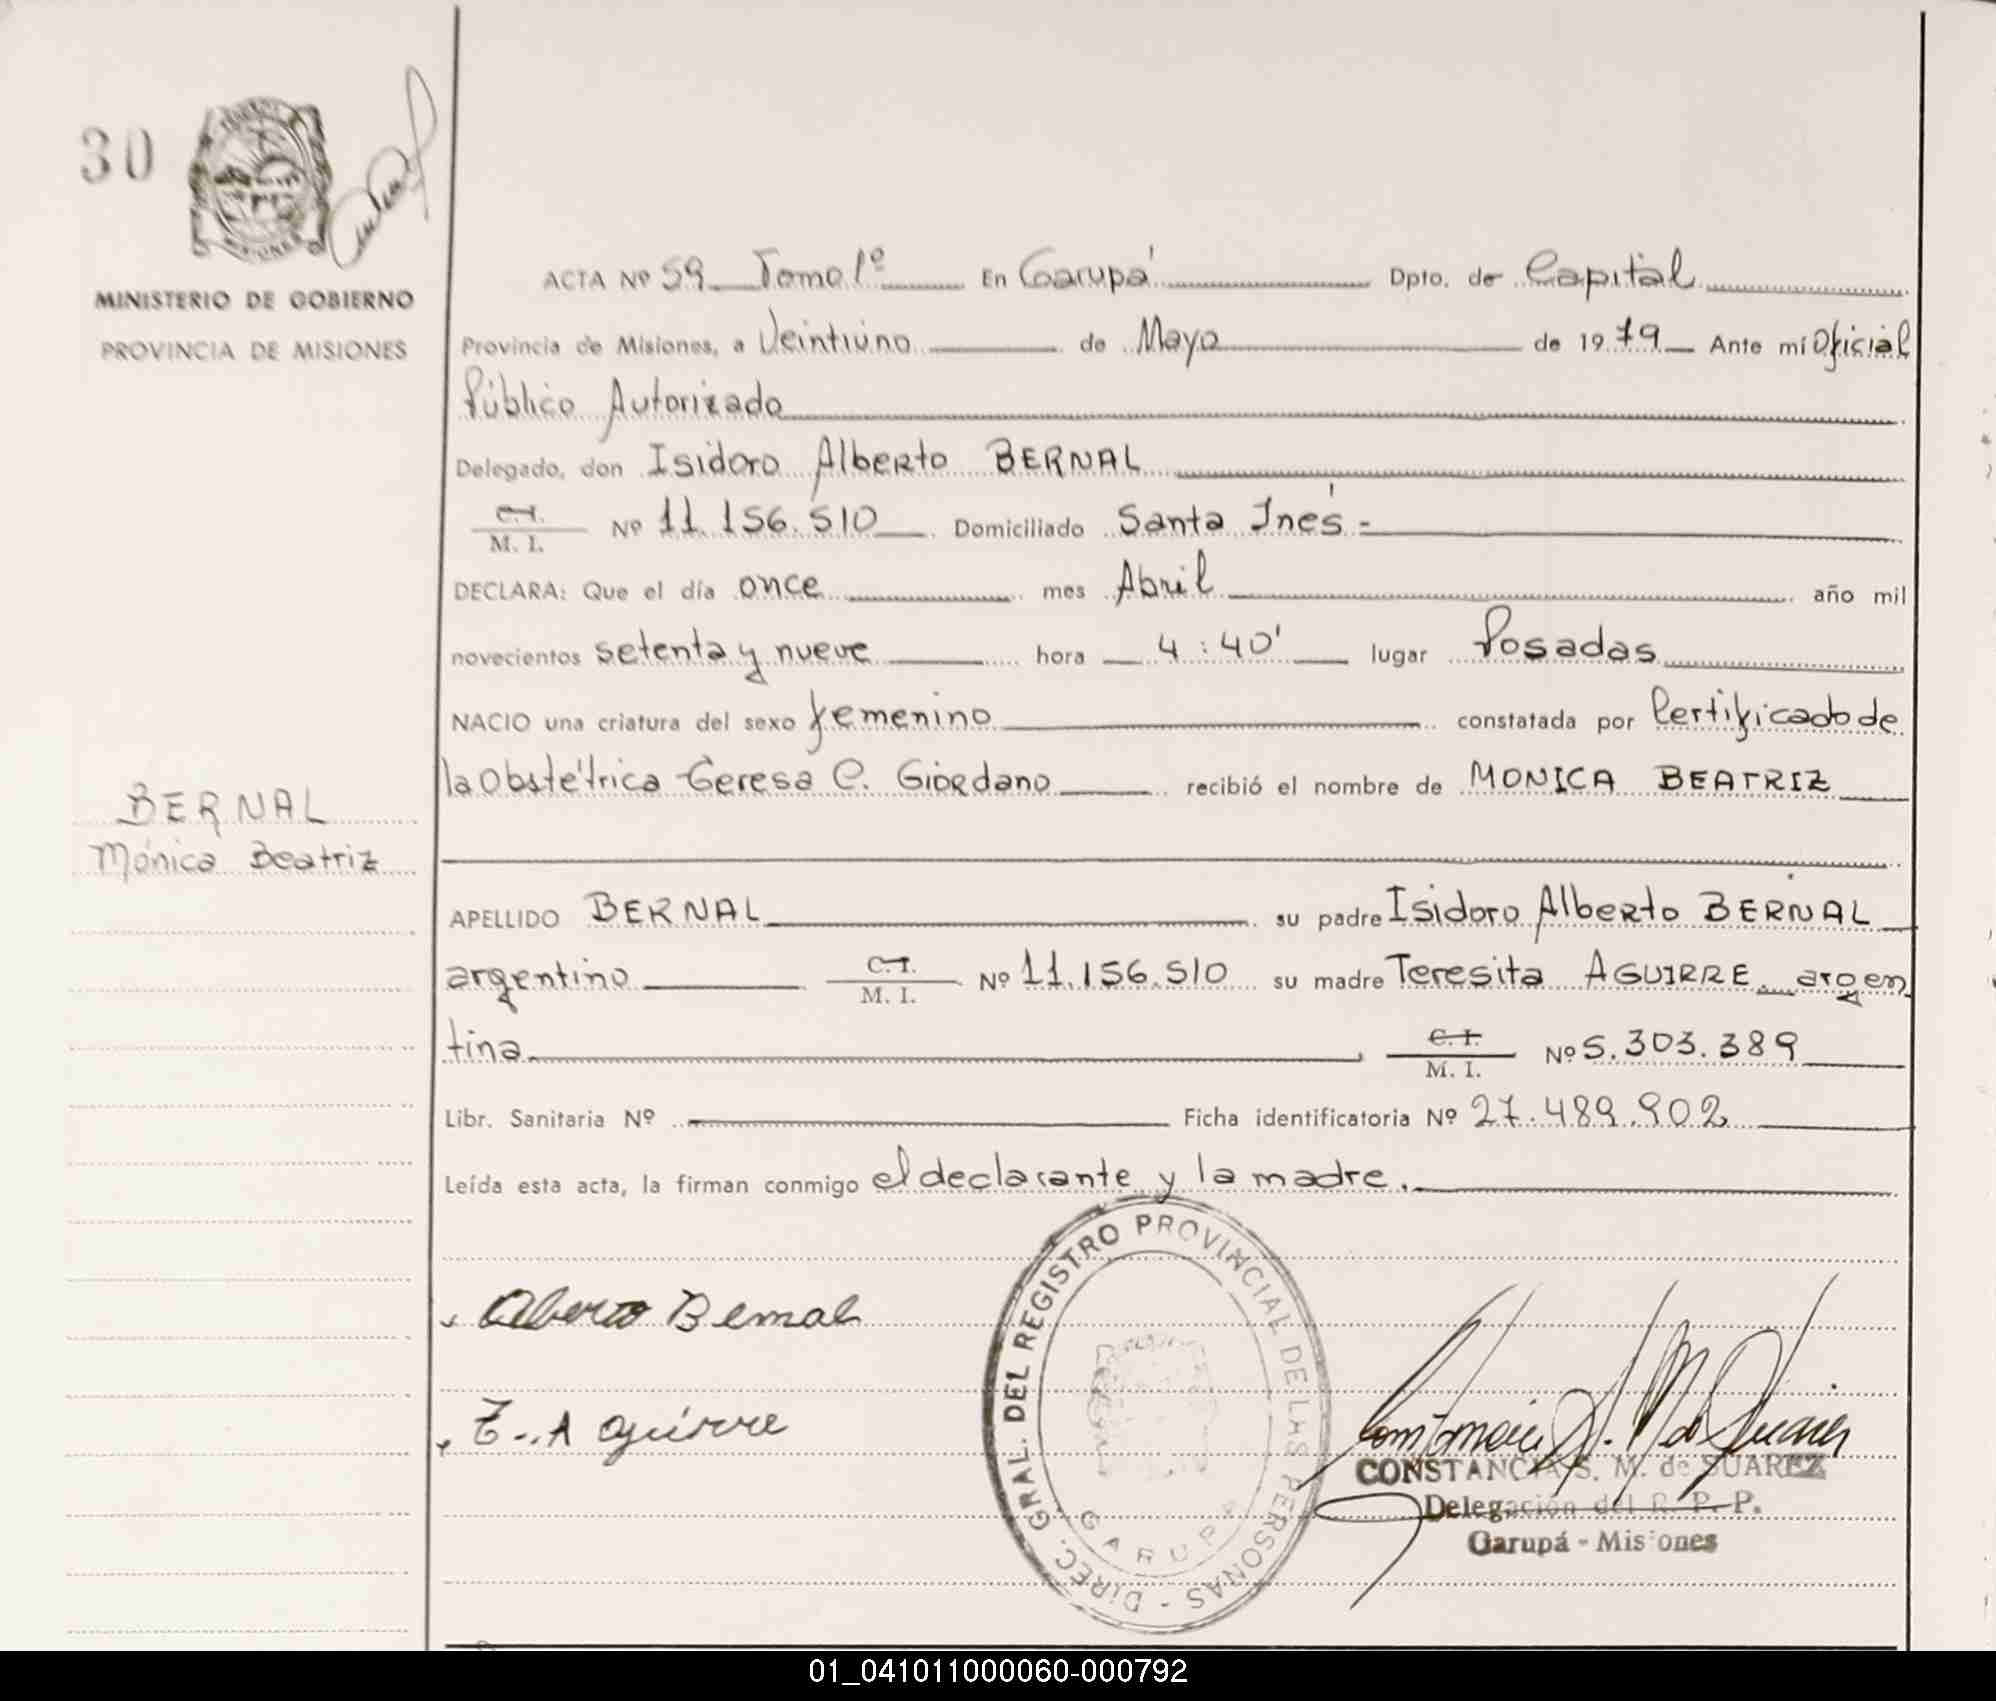 30
MINISTERIO DE GOBIERNO
PROVINCIA DE MISIONES
ACTA Nº 59 Tomo 1º En Garupá Dpto. de Capital
Provincia de Misiones, a Veintiuno de Mayo de 1979 Ante mí Oficial
Público Autorizado
Delegado, don Isidoro Alberto BERNAL
C.I.
M. I. Nº 11.156.510 Domiciliado Santa Inés.-
DECLARA: Que el día once mes Abril año mil
novecientos setenta y nueve hora 4:40' lugar Posadas
NACIO una criatura del sexo femenino constatada por Certificado de
la Obstétrica Teresa C. Giordano recibió el nombre de MONICA BEATRIZ
BERNAL
Mónica Beatriz
APELLIDO BERNAL su padre Isidoro Alberto BERNAL
argentino C.I.
M. I. Nº 11.156.510 su madre Teresita AGUIRRE argen
tina C. I.
M. I. Nº 5.303.389
Libr. Sanitaria Nº Ficha identificatoria Nº 27.489.902
Leída esta acta, la firman conmigo el declarante y la madre.
Alberto Bernal
T. Aguirre
DIREC. GRAL. DEL REGISTRO PROVINCIAL DE LAS PERSONAS -
GARUPA
Constancia S. M de Suarez
CONSTANCIA S. M. de SUAREZ
Delegación del R. P. P.
Garupá - Misiones
01_041011000060-000792